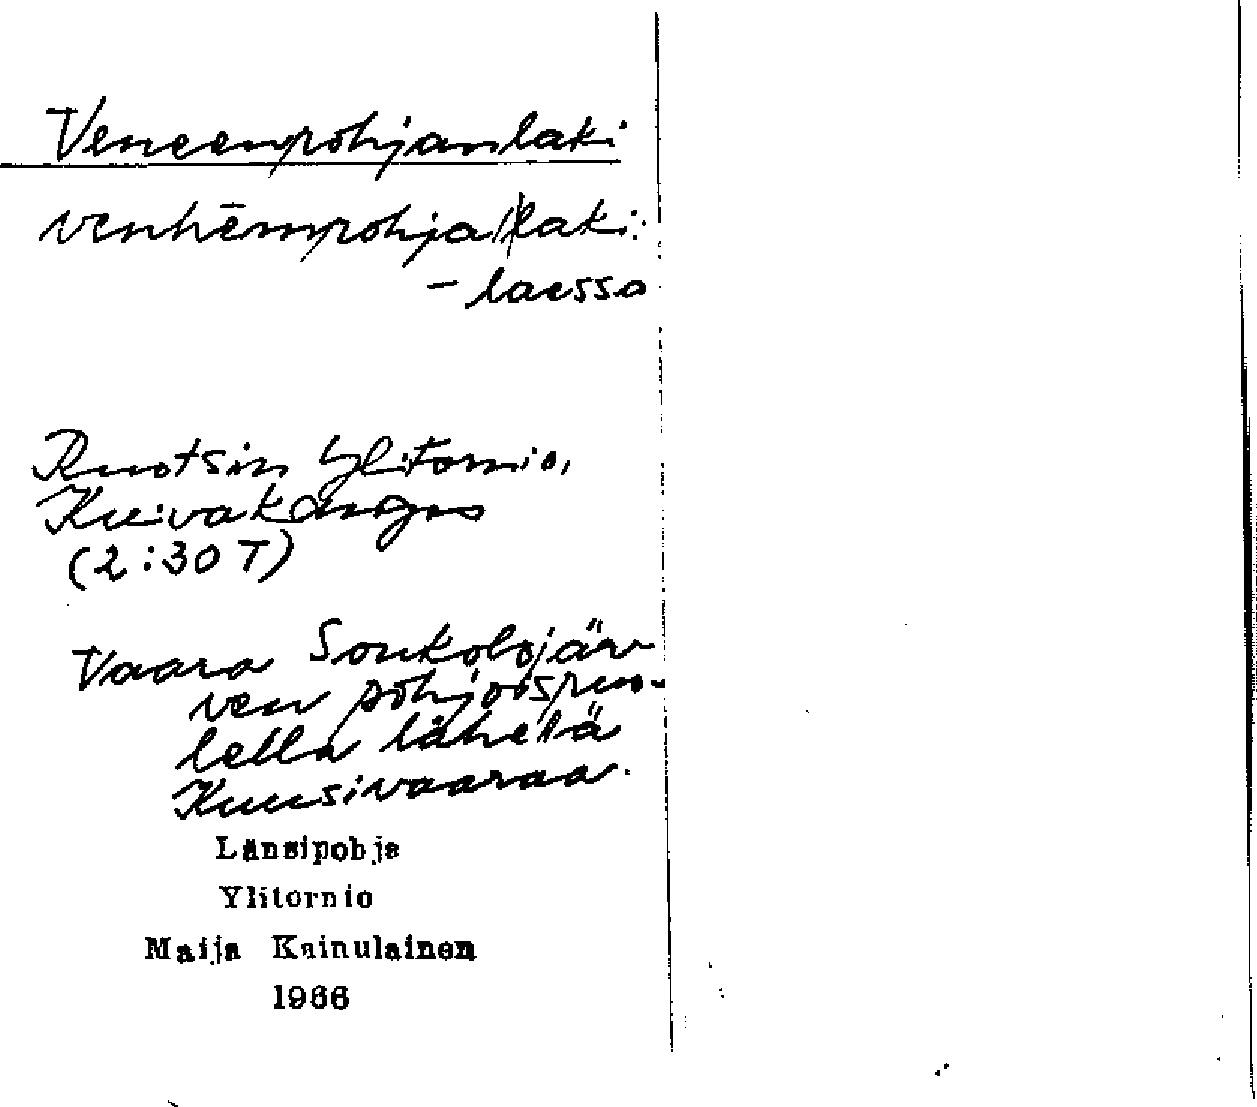 Veneenpohjanlaki
venhēmpohja||laki:
- laessa
Ruotsin Ylitornio,
Kuivakangas
(2:30 T)
Vaara Soukolojär-
ven pohjoispuo-
lella lähellä
Kuusivaaraa.
Länsipohja
Ylitornio
Maija Kainulainen
1966